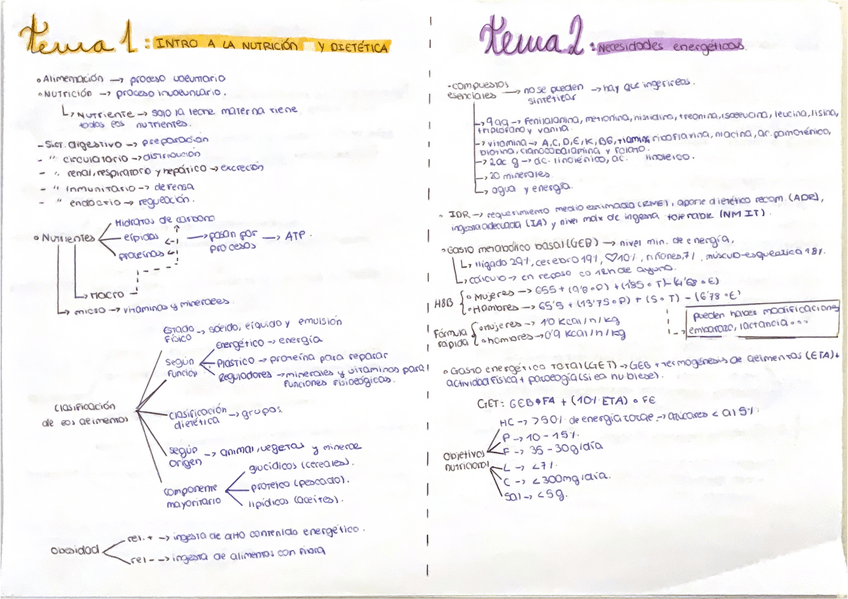 Tema 1: INTRO A LA NUTRICIÓN Y DIETÉTICA
• Alimentación → proceso voluntario
• NUTRICIÓN → proceso involuntario.
↳ Nutriente → solo la leche materna tiene
todos los nutrientes.
- Sist. digestivo → preparación
- " circulatorio → distribución
- " renal, respiratorio y hepático → excreción
- " inmunitario → defensa
- " endocrio → regulación.
• Nutrientes
Hidratos de carbono
lípidos
proteínas
→ pasan por
procesos → ATP.
→ macro
→ micro → vitaminas y minerales.
Clasificación
de los alimentos
Estado
físico → sólido, líquido y emulsión
según
función
energético → energía
Plástico → proteína para reparar
Reguladores → minerales y vitaminas para
funciones fisiológicas.
clasificación
dietética → grupos
según
origen → animal, vegetal y mineral
componente
mayoritario
glucídicos (cereales).
proteico (pescado).
lipídicos (aceites).
Obesidad
rel. + → ingesta de alto contenido energético.
rel - → ingesta de alimentos con fibra
Tema 2: Necesidades energéticas
- compuestos
esenciales → no se pueden
sintetizar → hay que ingerirlas.
→ 9 aa → fenilalanina, metionina, histidina, treonina, isoleucina, leucina, lisina,
triptófano y valina.
→ vitamina → A, C, D, E, K, B6, tiamina, riboflavina, niacina, ac. pantoténico,
biotina, cianocobalamina y folato.
→ 2 ac g → ac. linolénico, ac. linoleico.
→ 20 minerales
→ agua y energía.
• IDR → requerimiento medio estimado (RME), aporte dietético recom. (ADR),
ingesta adecuada (IA) y nivel máx de ingesta tolerable (NMIT).
• Gasto metabólico basal (GEB) → nivel min. de energía,
↳ Hígado 29%, cerebro 19%, ♡ 10%, riñones 7%, músculo esquelética 18%.
↳ cálculo → en reposo co 12h de ayuno.
HBG
• Mujeres → 655 + (9'8 • P) + (1'85 • T) - (4'68 • E)
• Hombres → 65'5 + (13'75 • P) + (5 • T) - (6'78 • E)
Fórmula
rápida
• mujeres → 1'0 Kcal/h/kg
• hombres → 0'9 Kcal/h/kg
pueden haber modificaciones
embarazo, lactancia...
• Gasto energético total (GET) → GEB + termogénesis de alimentos (ETA) +
actividad física + patología (si es nubiese).
GET: GEB • FA + (10% ETA) • FE
Objetivos
nutricional
HC → > 50% de energía total → azúcares < al 5%.
P → 10 - 15%.
F → 35 - 30g/día
L → < 7%
C → < 300mg/día.
Sal → < 5g.